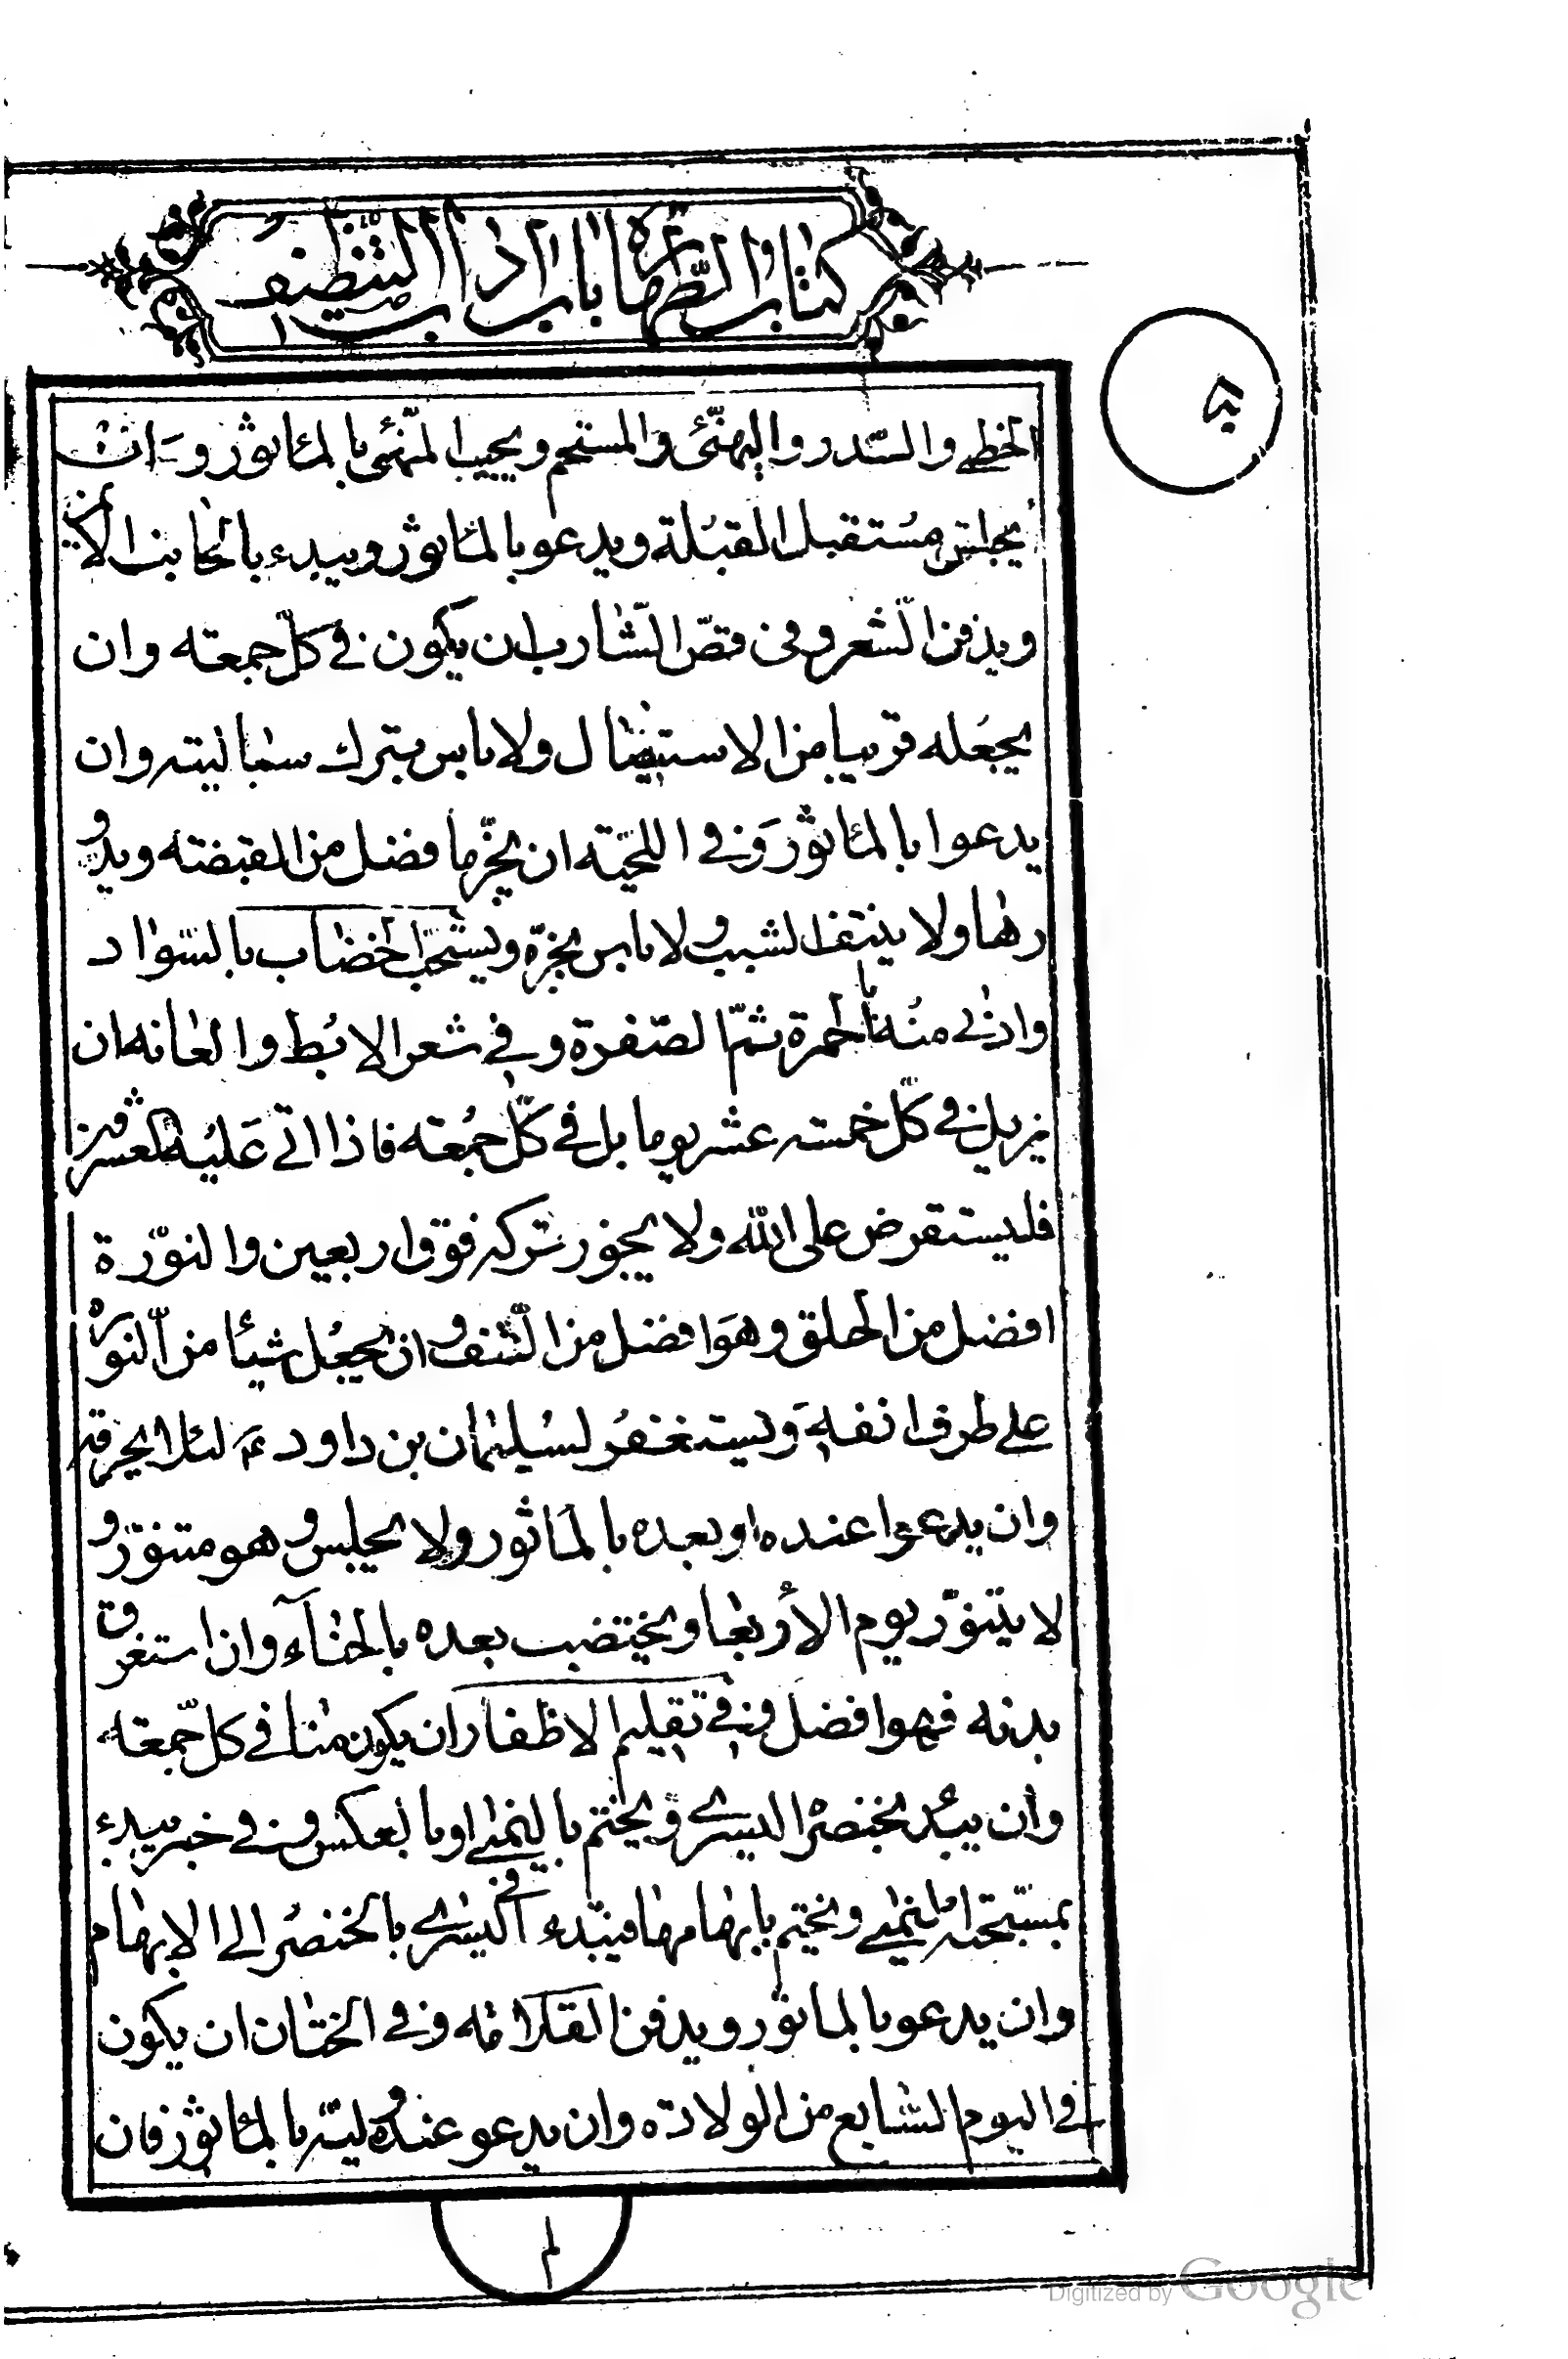 كتاب الطهارة باب اداب التنظيف
الخطمي والسدر واليهنّئ المستحم ويجيب المهنّئ بالمأثور و ان
يجلس مستقبل القبلة ويدعو بالمأثور ويبدء بالجانب الأيمن
ويدفن الشعر وفى قصّ الشّارب ان يكون فى كلّ جمعته وان
يجعله قريبا من الاستيصال ولا باس بترك سبالیته وان
يدعوا بالمأثور وفى اللحيّته ان يجزّ ما فضل من القبضته ويدو
رها ولا ينتف الشيب ولا باس بجزّه ويستحبّ الخضاب بالسّواد
وادنى منه الحمرة ثمّ الصّفرة وفي شعر الابط والعانه ان
يزيل فى كلّ خمسته عشر يوما بل في كلّ جمعته فاذا اتى عليه العشرين
فليستقرض على الله ولا يجوز تركه فوق اربعين والنّورة
افضل من الحلق وهو افضل من النّتف و ان يجعل شيئا من النّورة
على طرف انفه ويستغفر لسليمان بن داود ع لئلا يحرقه
وان يدعوا عنده او بعده بالمأثور ولا يجلس وهو متنوّر و
لا يتنوّر يوم الأربعا ويختضب بعده بالحنّآء وان استغرق
بدنه فهو افضل وفي تقليم الاظفار ان يكون منا في كلّ جمعته
وان يبدء بخنصر اليسرى ويختم باليمنى او بالعكس وفى خبر يبدء
بمسبّحته اليمنى ويختم بابهامها فيبتدء في اليسرى بالخنصر الى الابهام
وان يدعو بالمأثور ويدفن القلامه وفى الختان ان يكون
فى اليوم السّابع من الولادته وان يدعو عنده وليّه بالمأثور فان